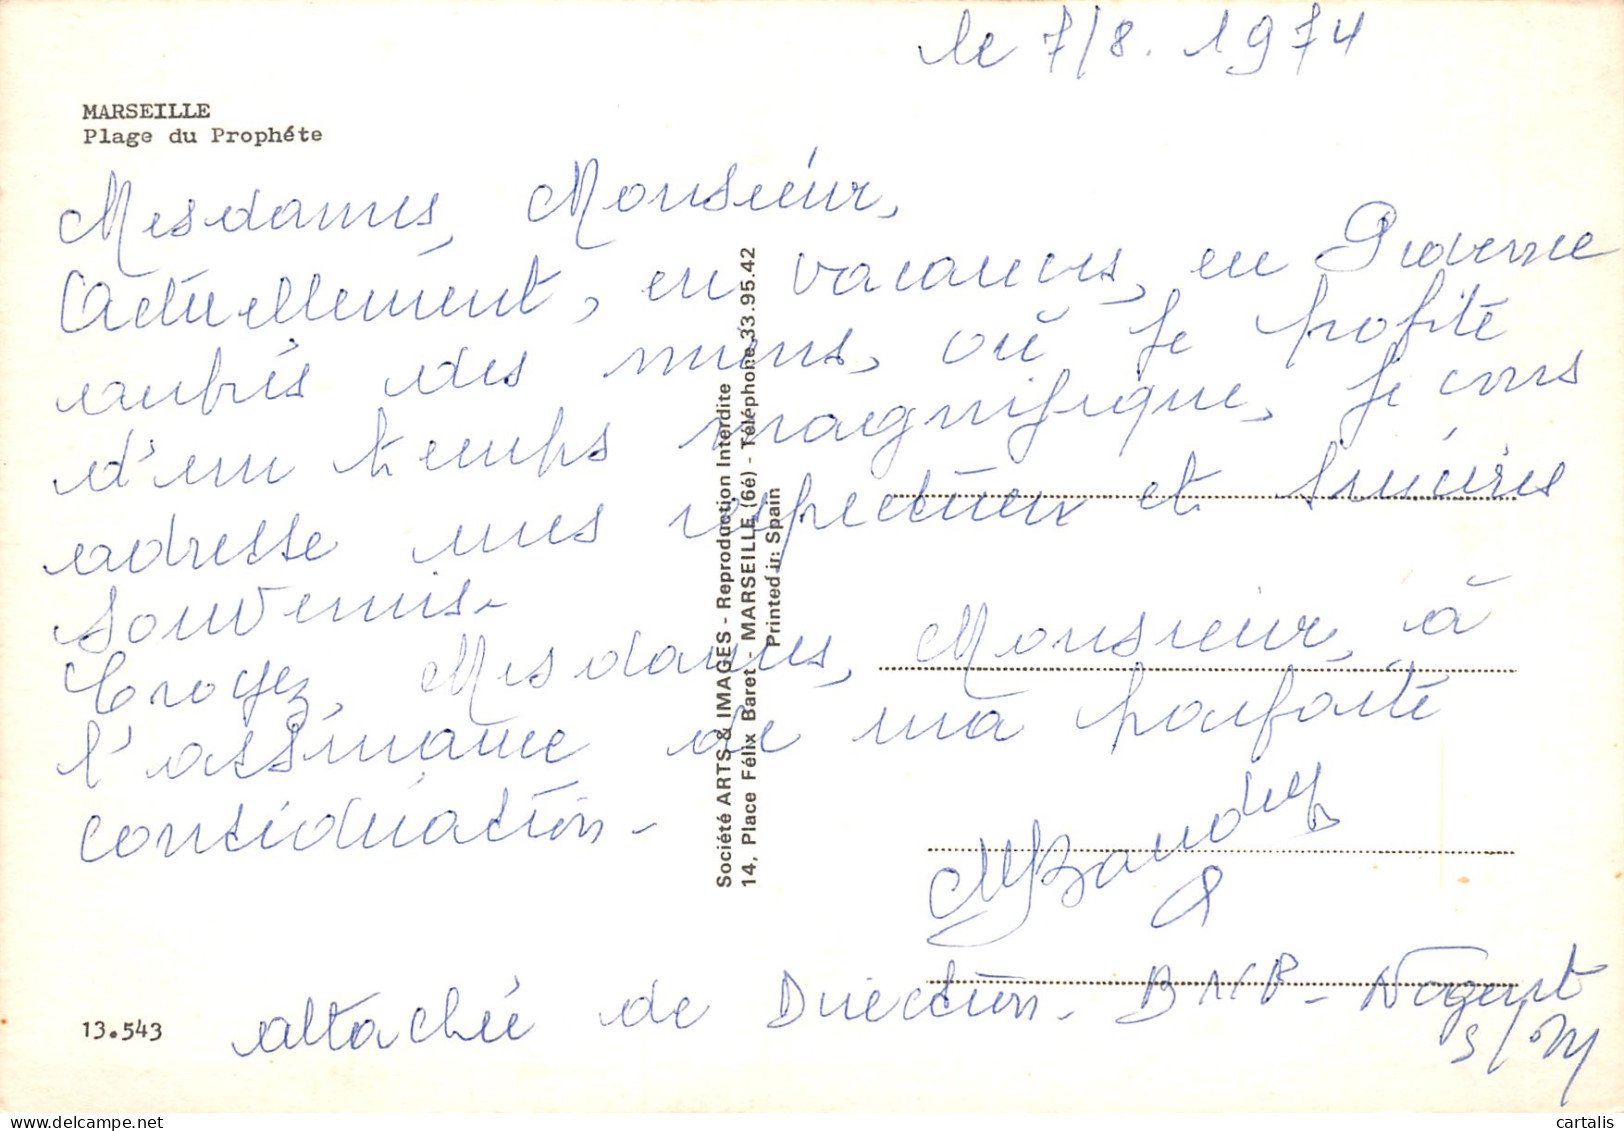 le 7/8. 1974
MARSEILLE
Plage du Prophéte
Mesdames, Monsieur,
Actuellement, en vacances, en Provence
auprès des miens, où je profite
d'un temps magnifique, je vous
adresse mes respectueux et sincères
souvenirs.
Croyez, Mesdames, Monsieur, à
l'assurance de ma parfaite
considération.
attachée de Direction. BNP - Nogent
s/M
13.543
Société ARTS & IMAGES - Reproduction Interdite
14, Place Félix Baret - MARSEILLE (6é) - Téléphone 33.95.42
Printed in Spain
cartalis